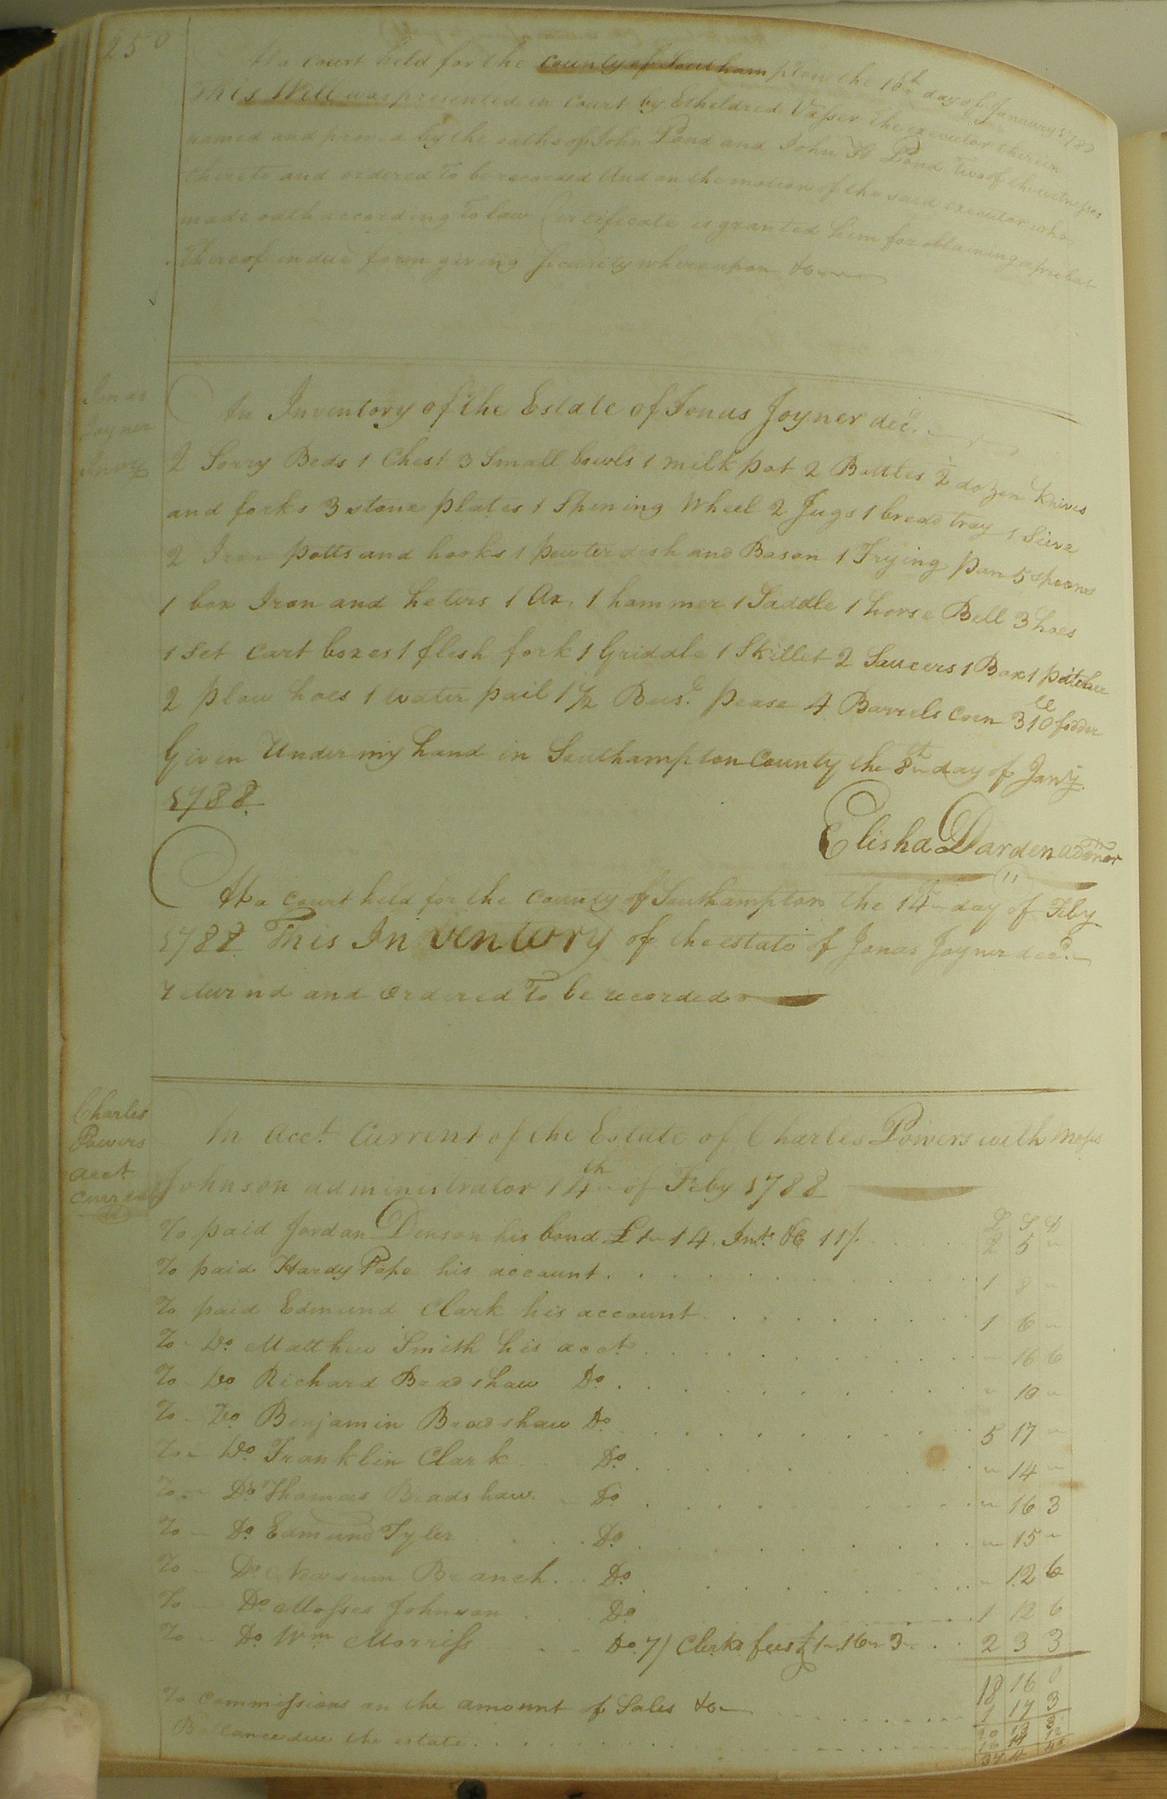 250
At a court held for the county of Southampton the 10th day of January 1788
This Will was presented in Court by Etheldred Vasser the executor therein
named and proved by the oaths of John Pond and John Pond two of the witnesses
thereto and ordered to be recorded And on the motion of the said executor who
made oath according to law Certificate is granted him for obtaining a probat
thereof in due form giving Security whereupon &c
Jonas
Joyner
Invy
An Inventory of the Estate of Jonas Joyner decd.
2 Sorry Beds 1 Chest 3 Small bowls 1 milk pot 2 Bottles ½ dozen knives
and forks 3 stone plates 1 Spining Wheel 2 Jugs 1 bread tray 1 Sieve
2 Iron potts and hooks 1 pewter dish and Bason 1 Frying pan 5 spoons
1 box Iron and heters 1 Ax, 1 hammer 1 Saddle 1 horse Bell 3 hoes
1 Set Cart boxes 1 flesh fork 1 Griddle 1 Skillet 2 Saucers 1 Box 1 pitcher
2 plow hoes 1 water pail 1 ½ Buse. pease 4 Barrels corn 310 fodder
Given Under my hand in Southampton County the 8th day of Jany
1788.
Elisha Darden admor
At a court held for the county of Southampton the 14th day of Feby
1788 This Inventory of the estate of Jonas Joyner decd.
returnd and ordered To be recorded
Charles
Powers
acct
Current
An acct. Current of the Estate of Charles Powers with Moses
Johnson administrator 14th of Feby 1788
£ S D
To paid Jordan Denson his bond £1 - 14. Int. &c 11/. 2 5 -
To paid Hardy Pope his account 1 8 -
To paid Edmund Clark his account 1 6 -
To Do. Matthew Smith his acct - 16 6
To Do Richard Bradshaw Do. - 10 -
To Do Benjamin Bradshaw Do 5 17 -
To Do Franklin Clark Do - 14 -
To Do Thomas Bradshaw Do - 16 3
To Do Edmund Tyler Do - 15 -
To Do Newsum Branch Do - 12 6
To Do Mosses Johnson Do 1 12 6
To Do Wm Morriss Do 7/ Clerks fees £1 - 16 - 3 2 3 3
18 16 0
To Commissions on the amount of Sales &c 1 17 3
Ballance due the estate